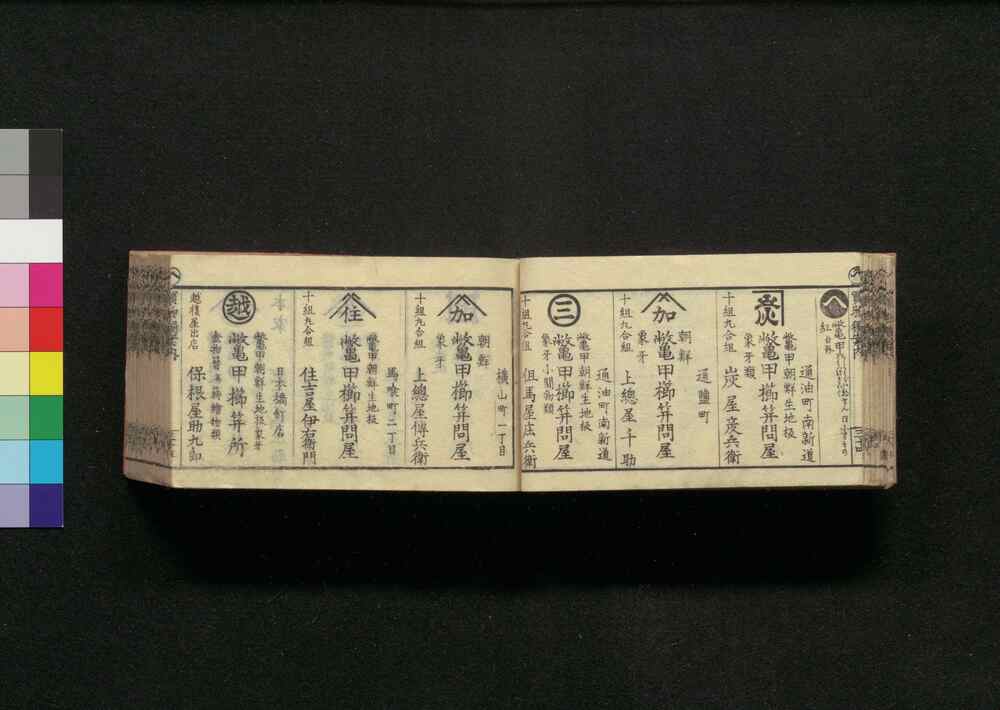 通油町南新道
鼈甲朝鮮生地板
象牙類
鼈亀甲櫛笄問屋
十組九合組
炭屋彦兵衛
通鹽町
朝鮮
象牙
加
鼈亀甲櫛笄問屋
十組九合組
上總屋斗助
通油町南新道
鼈甲朝鮮生地板
象牙小間物類
三
鼈亀甲櫛笄問屋
十組九合組
但馬屋庄兵衛
横山町一丁目
朝鮮
象牙
加
鼈亀甲櫛笄問屋
十組九合組
上總屋傳兵衛
馬喰町二丁目
鼈甲朝鮮生地板
住
鼈亀甲櫛笄問屋
十組九合組
住吉屋伊右衛門
日本橋釘店
鼈甲朝鮮生地板象牙
越
鼈亀甲櫛笄所
越後屋出店
保根屋助九郎